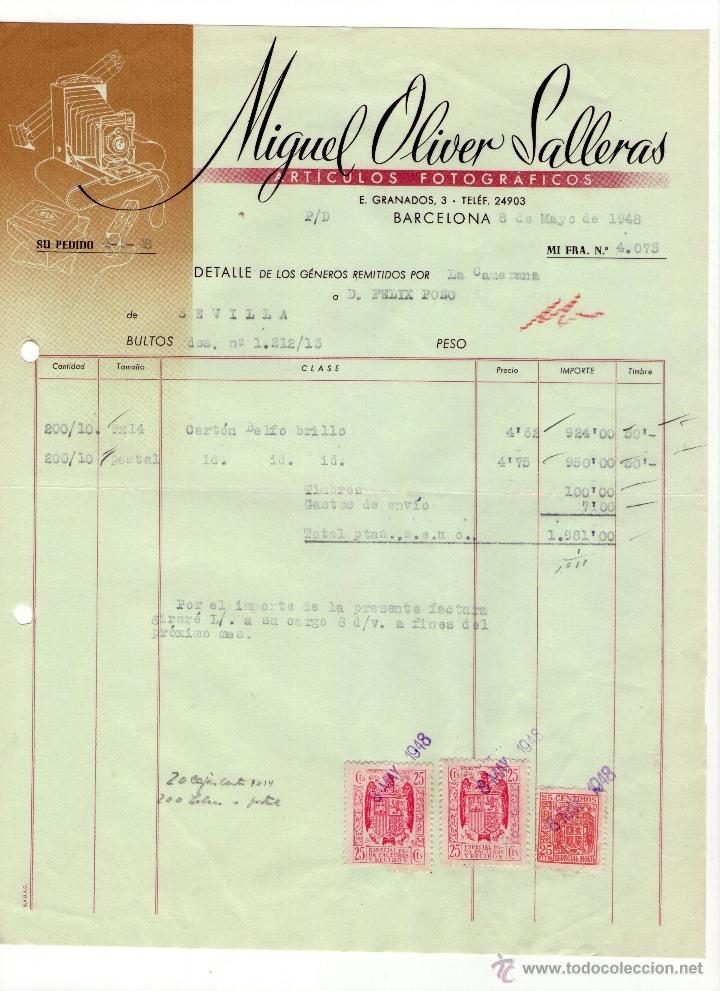 Miguel Oliver Salleras
ARTÍCULOS FOTOGRÁFICOS
E. GRANADOS, 3 · TELÉF. 24903
P/D BARCELONA 8 de Mayo de 1948
SU PEDIDO 4-4-48 MI FRA. N.º 4.073
DETALLE DE LOS GÉNEROS REMITIDOS POR La Camerana
a D. FELIX POZO
de SEVILLA
BULTOS dos, nº 1.212/13 PESO
Cantidad Tamaño CLASE Precio IMPORTE Timbre
200/10. 9x14 Cartón Belfo brillo 4'62 924'00 50'-
200/10 postal id. id. id. 4'75 950'00 50'-
Timbres 100'00
Gastos de envío 7'00
Total ptas., s.e.u o., 1.981'00
Por el importe de la presente factura
giraré L/. a su cargo 8 d/v. a fines del
próximo mes.
20 Cajas 9x14
200
8 MAY 1948
8 MAY 1948
8 MAY 1948
Cts 25
ESPECIAL PA-
RA FACTURAS
Y RECIBOS
25 Cts
Cts 25
ESPECIAL PA-
RA FACTURAS
Y RECIBOS
25 Cts
25 CENTIMOS
25
ESPECIAL MOVIL
www.todocoleccion.net